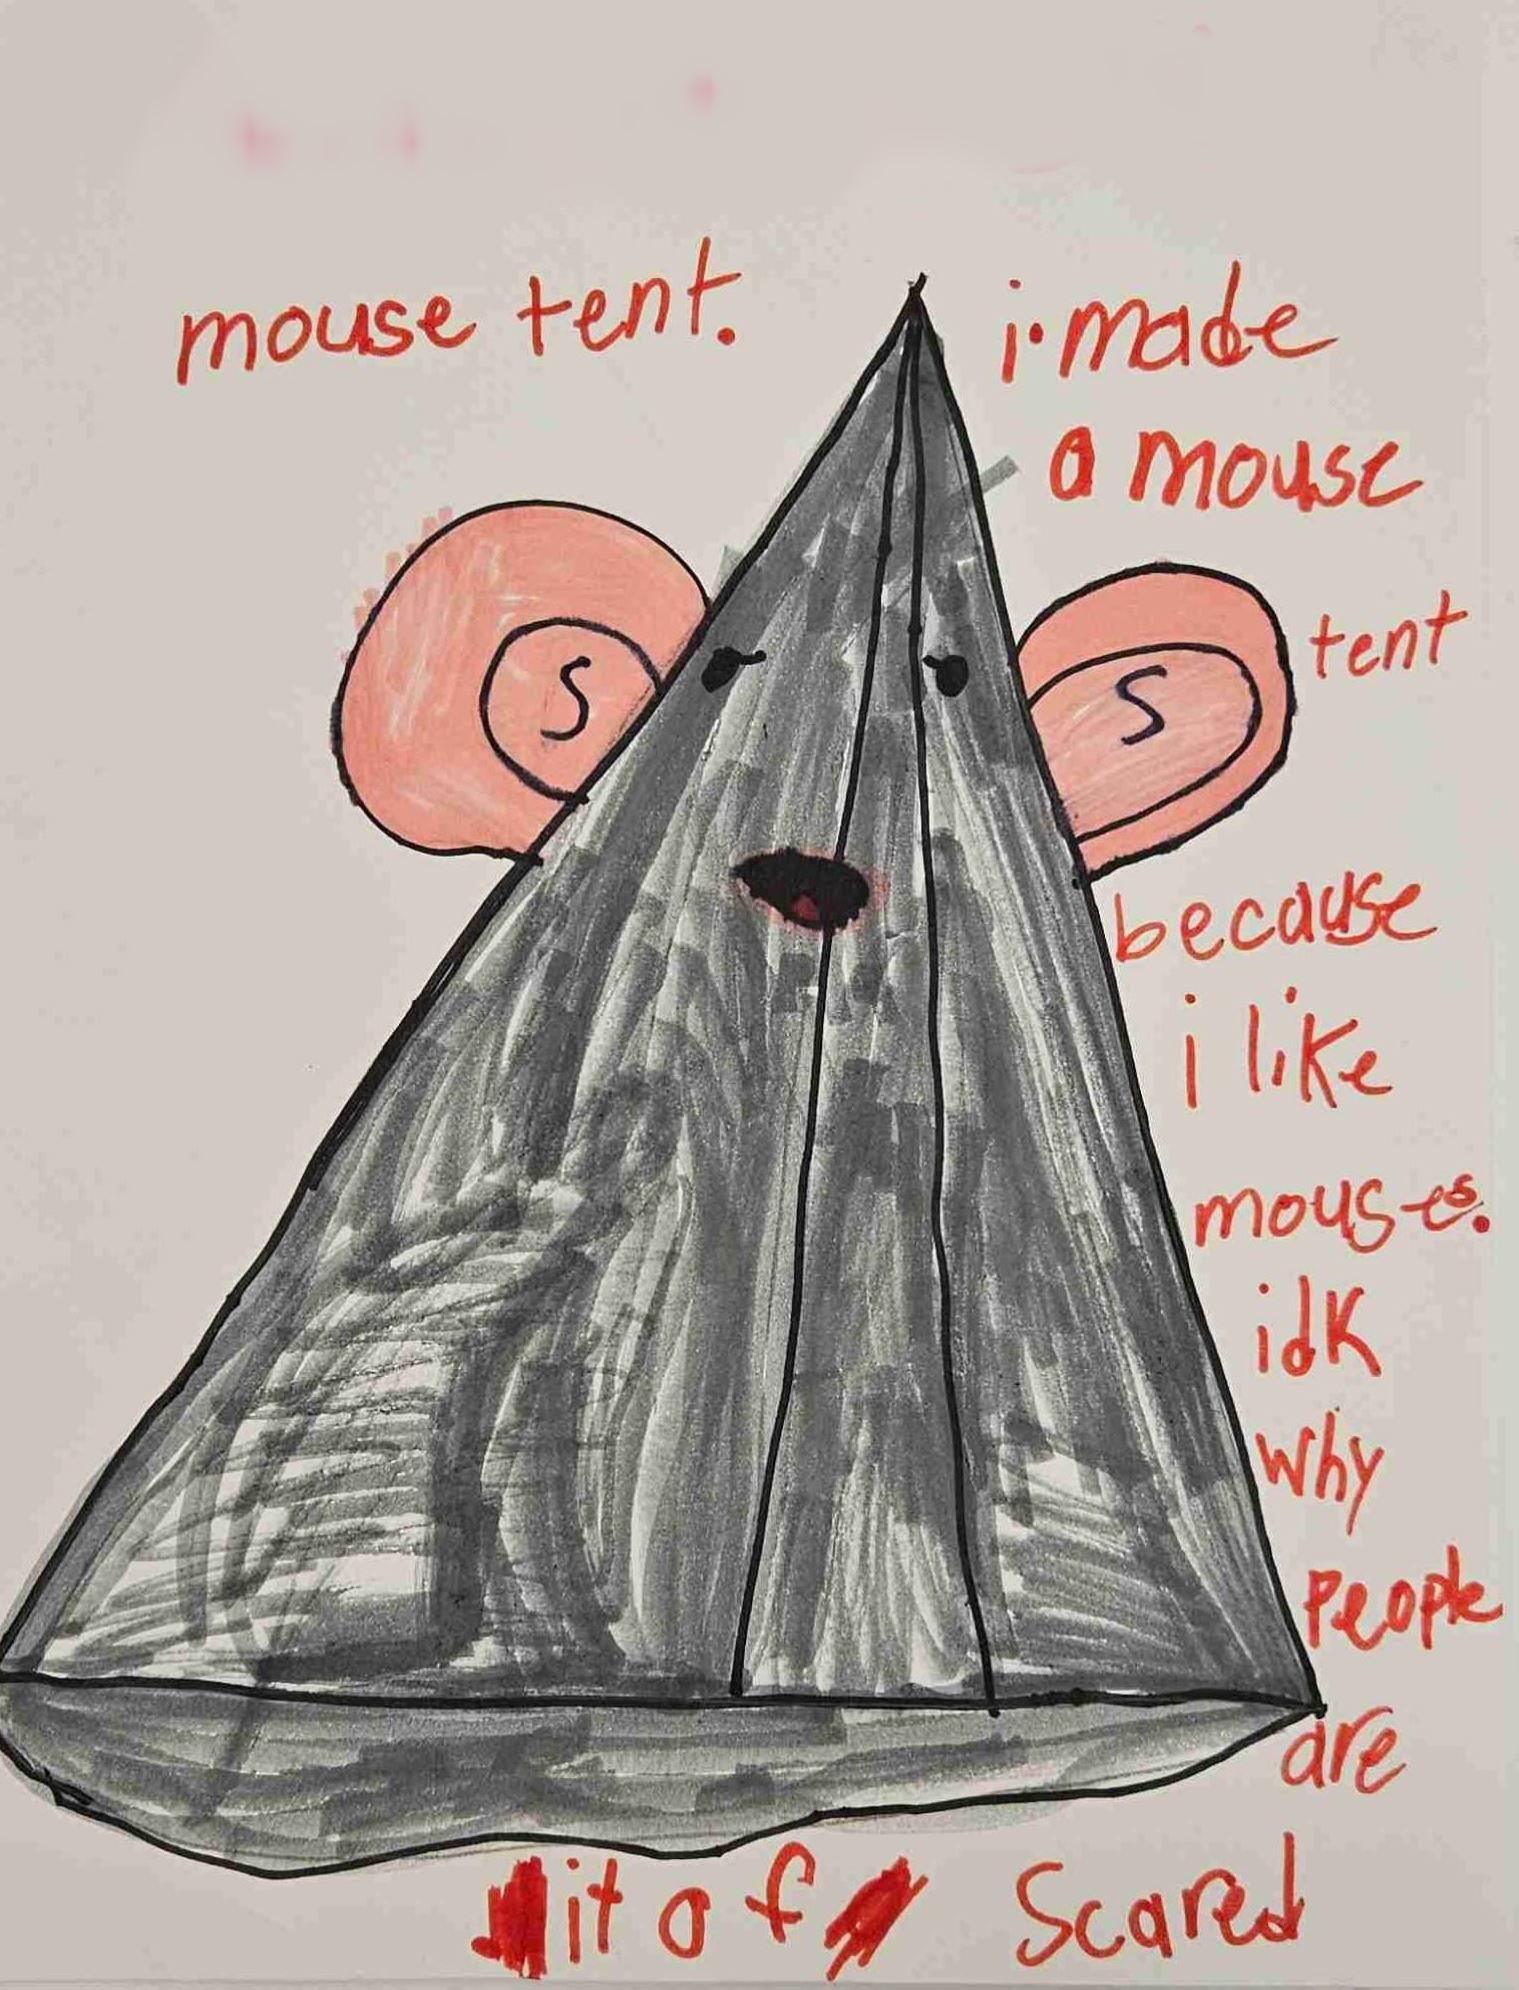 mouse tent.
i made
a mouse
tent
S
S
because
i like
mouses.
idk
why
People
are
Scared
it of